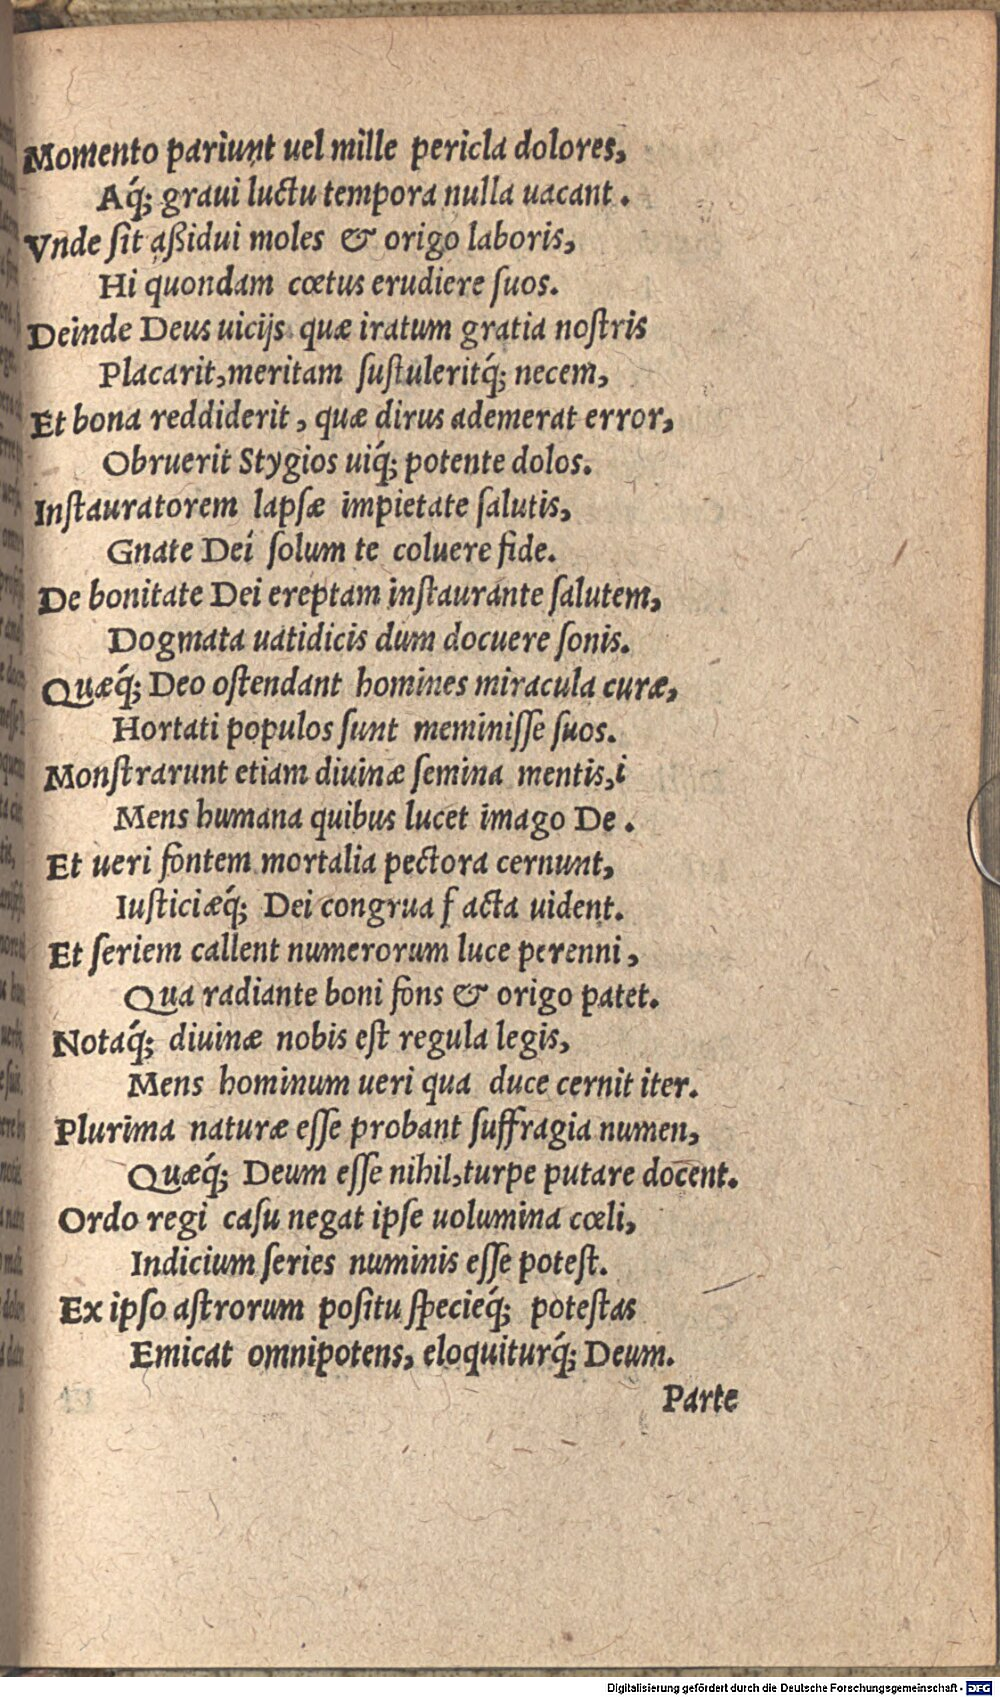 Momento pariunt uel mille pericla dolores,
Aq́; graui luctu tempora nulla uacant.
Vnde ſit aßidui moles & origo laboris,
Hi quondam cœtus erudiere ſuos.
Deinde Deus uicijs quæ iratum gratia noſtris
Placarit, meritam ſuſtuleritq́; necem,
Et bona reddiderit, quæ dirus ademerat error,
Obruerit Stygios uiq́; potente dolos.
Inſtauratorem lapſæ impietate ſalutis,
Gnate Dei ſolum te coluere fide.
De bonitate Dei ereptam inſtaurante ſalutem,
Dogmata uatidicis dum docuere ſonis.
Quæq́; Deo oſtendant homines miracula curæ,
Hortati populos ſunt meminiſſe ſuos.
Monſtrarunt etiam diuinæ ſemina mentis,i
Mens humana quibus lucet imago De.
Et ueri fontem mortalia pectora cernunt,
Iuſticiæq́; Dei congrua f acta uident.
Et ſeriem callent numerorum luce perenni,
Qua radiante boni fons & origo patet.
Notaq́; diuinæ nobis eſt regula legis,
Mens hominum ueri qua duce cernit iter.
Plurima naturæ eſſe probant ſuffragia numen,
Quæq́; Deum eſſe nihil, turpe putare docent.
Ordo regi caſu negat ipſe uolumina cœli,
Indicium ſeries numinis eſſe poteſt.
Ex ipſo aſtrorum poſitu ſpecieq́; poteſtas
Emicat omnipotens, eloquiturq́; Deum.
Parte
Digitalisierung gefördert durch die Deutsche Forschungsgemeinschaft - DFG